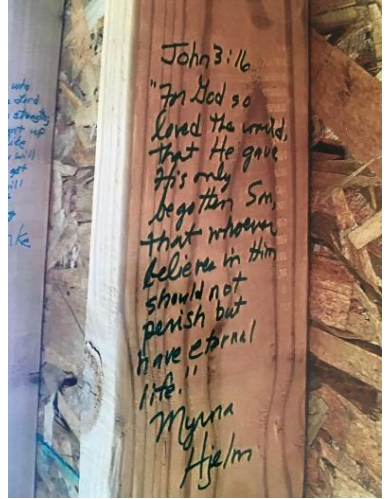 John 3:16
"For God so
loved the world,
that He gave
His only
begotten Son,
that whoever
believes in Him
should not
perish but
have eternal
life."
Myrna
Hjelm
who
Lord
strength
up
like
will
get